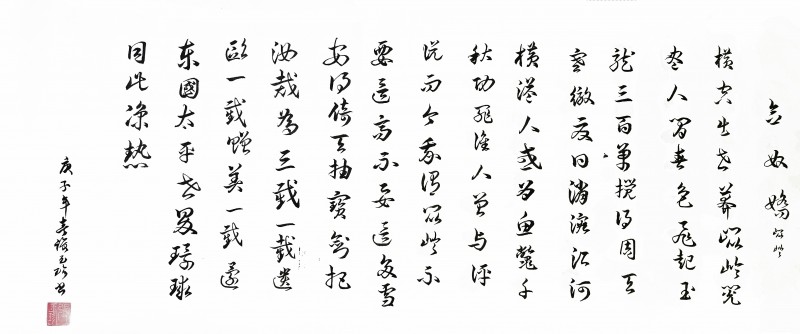 念奴嬌 崑崙
橫空出世莽崑崙閱
盡人間春色飛起玉
龍三百萬攪得周天
寒徹夏日消溶江河
橫溢人或為魚鱉千
秋功罪誰人曾與評
說而今我謂崑崙不
要這高不要這多雪
安得倚天抽寶劍把
汝裁為三截一截遺
歐一截贈美一截還
東國太平世界環球
同此涼熱
庚子年春 玉 書